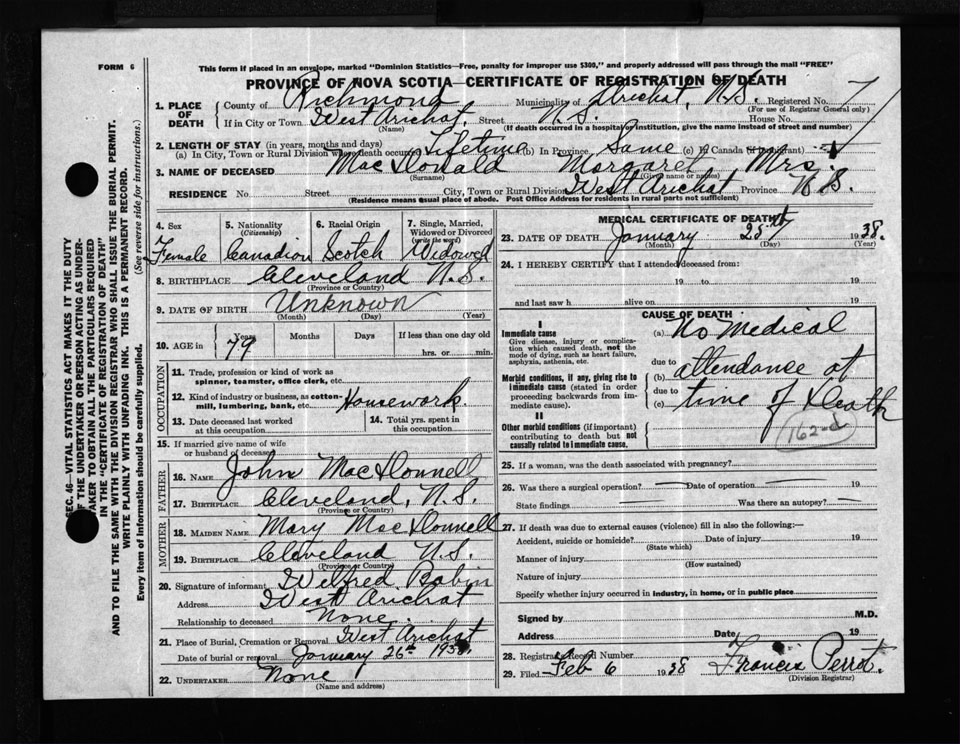 FORM 6
This form if placed in an envelope, marked "Dominion Statistics—Free, penalty for improper use $300," and properly addressed will pass through the mail "FREE"
PROVINCE OF NOVA SCOTIA—CERTIFICATE OF REGISTRATION OF DEATH
1. PLACE OF DEATH
County of Richmond Municipality of Arichat, N.S. Registered No.
(For use of Registrar General only)
If in City or Town West Arichat, Street N.S. House No.
(Name) (If death occurred in a hospital or institution, give the name instead of street and number)
2. LENGTH OF STAY (in years, months and days)
(a) In City, Town or Rural Division where death occurred Lifetime (b) In Province Same (c) In Canada (if immigrant)
3. NAME OF DECEASED MacDonald Margaret Mrs.
(Surname) (Given name or names)
RESIDENCE No. Street City, Town or Rural Division West Arichat Province N.S.
(Residence means usual place of abode. Post Office Address for residents in rural parts not sufficient)
4. Sex Female
5. Nationality (Citizenship) Canadian
6. Racial Origin Scotch
7. Single, Married, Widowed or Divorced (write the word) Widowed
8. BIRTHPLACE Cleveland N.S.
(Province or Country)
9. DATE OF BIRTH Unknown
(Month) (Day) (Year)
10. AGE in Years 79 Months Days If less than one day old
hrs. or min.
OCCUPATION
11. Trade, profession or kind of work as spinner, teamster, office clerk, etc.
12. Kind of industry or business, as cotton-mill, lumbering, bank, etc. Housework.
13. Date deceased last worked at this occupation
14. Total yrs. spent in this occupation
15. If married give name of wife or husband of deceased
FATHER
16. NAME John MacDonnell
17. BIRTHPLACE Cleveland, N.S.
(Province or Country)
MOTHER
18. MAIDEN NAME Mary MacDonnell
19. BIRTHPLACE Cleveland N.S.
(Province or Country)
20. Signature of informant Wilfred Babin
Address West Arichat
Relationship to deceased None.
21. Place of Burial, Cremation or Removal West Arichat
Date of burial or removal January 26th 1938.
22. UNDERTAKER None
(Name and address)
MEDICAL CERTIFICATE OF DEATH
23. DATE OF DEATH January 25 1938.
(Month) (Day) (Year)
24. I HEREBY CERTIFY that I attended deceased from:
19 to 19
and last saw h alive on 19
CAUSE OF DEATH
I
Immediate cause
Give disease, injury or complication which caused death, not the mode of dying, such as heart failure, asphyxia, asthenia, etc.
(a) No medical
due to
Morbid conditions, if any, giving rise to immediate cause (stated in order proceeding backwards from immediate cause).
(b) attendance at
due to
(c) time of Death
II
Other morbid conditions (if important) contributing to death but not causally related to immediate cause.
25. If a woman, was the death associated with pregnancy?
26. Was there a surgical operation? Date of operation 19
State findings Was there an autopsy?
27. If death was due to external causes (violence) fill in also the following:—
Accident, suicide or homicide? Date of injury 19
(State which)
Manner of injury
(How sustained)
Nature of injury
Specify whether injury occurred in industry, in home, or in public place
Signed by M.D.
Address Date 19
28. Registrar's Record Number
29. Filed Feb 6 1938 Francis Perrot.
(Division Registrar)
SEC. 46—VITAL STATISTICS ACT MAKES IT THE DUTY
OF THE UNDERTAKER OR PERSON ACTING AS UNDER-
TAKER TO OBTAIN ALL THE PARTICULARS REQUIRED
IN THE "CERTIFICATE OF REGISTRATION OF DEATH"
AND TO FILE THE SAME WITH THE DIVISION REGISTRAR WHO SHALL ISSUE THE BURIAL PERMIT.
WRITE PLAINLY WITH UNFADING INK. THIS IS A PERMANENT RECORD.
Every item of information should be carefully supplied. (See reverse side for instructions.)